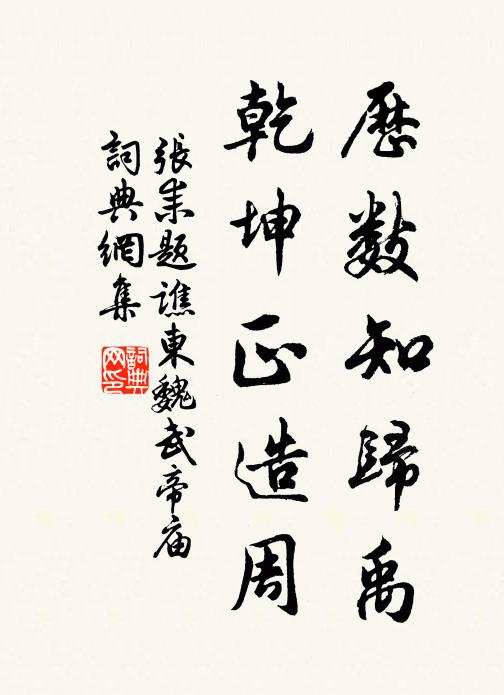 歷數知歸禹
乾坤正造周
張耒題譙東魏武帝庙
詞典網集
詞典
网印